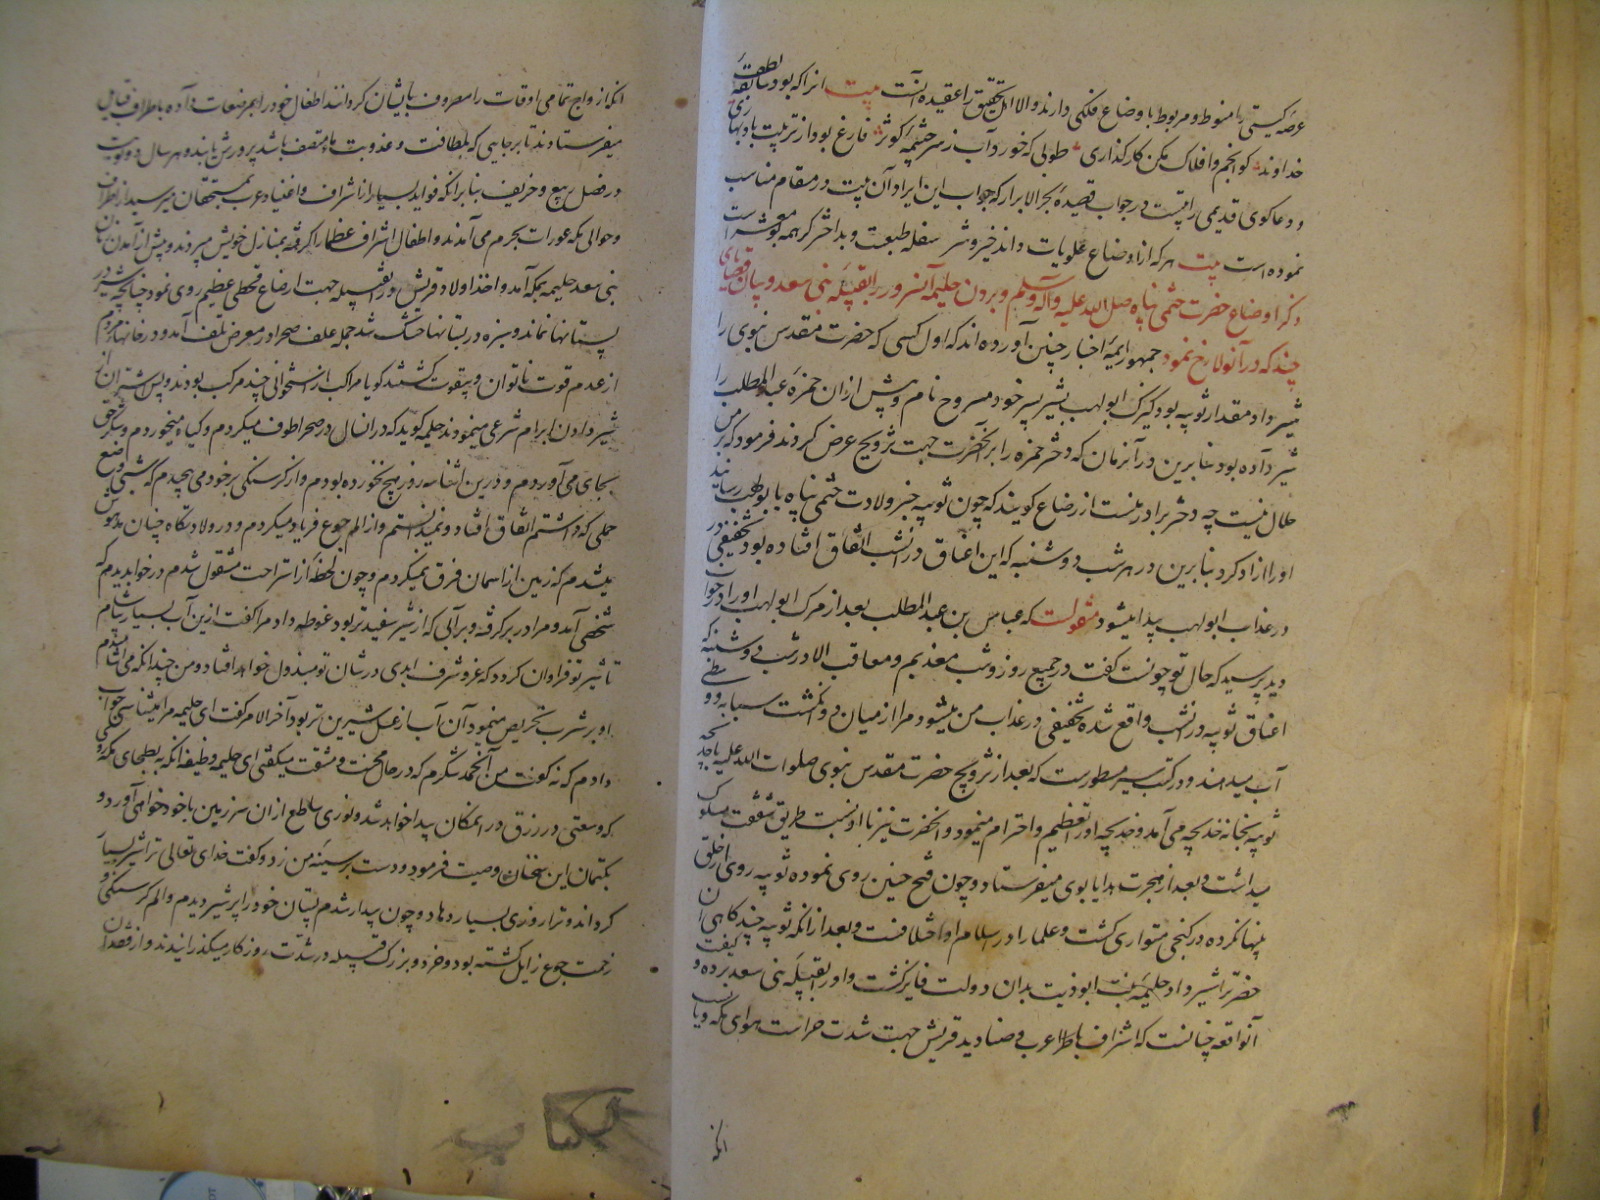 عرصهٔ کیستی را منوط و مربوط با وضاع فلکی دارند و الا اهل تحقیق را عقیده آنست بیت انرا که بود سابقهٔ لطف
خداوند کو انجم و افلاک مکن کارگذاری طوبی که خورد آب ز سرچشمهٔ کوثر فارغ بود از تربیت باد بهاری
و دعاکوی قدیمی را بیتیست در جواب قصیدهٔ بحر الابرار که جواب این ایراد آن بیت در مقام مناسب
نموده است بیت هر که از اوضاع علویات داند خیر و شر سفله طبعست و بد اختر کر همه بو معشر است
ذکر اوضاع حضرت ختمی پناه صلی الله علیه و آله و سلم و بردن حلیمه آنسرور را بقبیلهٔ بنی سعد و بیان قضایای
چند که در آنولا رخ نمود جمهور ایمهٔ اخبار چنین آورده اند که اول کسی که حضرت مقدس نبوی را
شیر داد مقدار ثویبه بود کنیزک ابو لهب بشیر پسر خود مسروح نام و پیش ازان حمزهٔ عبد المطلب را
شیر داده بود بنابرین در آنزمان که دختر حمزه را بر آنحضرت جهت تزویج عرض کردند فرمود که بر من
حلال نیست چه دختر برادر منست از رضاع کویند که چون ثویبه خبر ولادت ختمی پناه با بو لهب رسانید
او را ازاد کرد بنابرین در هر شب دوشنبه که این اعتاق در انشب اتفاق افتاده بود تخفیفی در
در عذاب ابو لهب پیدا میشود منقولست که عباس بن عبد المطلب بعد از مرک ابو لهب او را در خواب
دید پرسید که حال تو چونست کفت در جمیع روز و شب معذبم و معاقب الا در شب دوشنبه که
اعتاق ثویبه در انشب واقع شده تخفیفی در عذاب من میشود و مرا از میان دو انکشت سبابه و وسطی
آب میدهند و در کتب سیر مسطورست که بعد از تزویج حضرت مقدس نبوی صلوات الله علیه با خدیجه
ثویبه بخانه خدیجه می آمد و خدیجه او را تعظیم و احترام مینمود و آنحضرت نیز با او نسبت طریق شفقت مسلوک
میداشت و بعد از هجرت هدایا بوی میفرستاد و چون فتح حنین روی نموده ثویبه روی از خلق
پنهان کرده در کنجی متواری کشت و علما را در اسلام او اختلافست و بعد از انکه ثویبه چند کاهی ان
حضرترا شیر داد حلیمهٔ بنت ابو ذیب بدان دولت فایز کشت و او را بقبیلهٔ بنی سعد برده و کیفیت
آنواقعه چنانست که اشراف بلاد عرب و صنادید قریش جهت شدت حرارت هوای مکه و یا سبب
انکه
انکه ازواج تمامی اوقات را مصروف بایشان کردانند اطفال خود را بمرضعات داده باطراف قبایل
میفرستادند تا بر جایی که بلطافت و عذوبت ما متصف باشد پرورش یابند و هر سال دو نوبت
در فصل ربیع و خریف بنابر انکه فواید بسیار از اشراف و اغنیاء عرب بمستحقان میرسید از اطراف
و حوالی مکه عورات بحرم می آمدند و اطفال اشراف عظام را کرفته بمنازل خویش میبردند و پیش از آمدن زنان
بنی سعد حلیمه بمکه آمد و اخذ اولاد قریش در انقبیله جهت ارضاع قحطی عظیم روی نمود چنانچه شیر در
پستانها نماند و سبزه در بستانها خشک شد جمله علف صحرا در معرض تلف آمد و در خانها مردم
از عدم قوت ناتوان و بیقوت کشتند کویا مراکب از استخوانی چند مرکب بودند و پس شتران
شیر دادن ابرام شرعی مینمودند حلیمه کوید که در انسال در صحرا طوف میکردم و کیاه میخوردم و شکر حق
بجای می آوردم و درین اثنا سه روز هیچ نخورده بودم و از کرسنکی بر خود می پیچیدم که شبی وضع
حملی که داشتم اتفاق افتاد و نمیدانستم و از الم جوع فریاد میکردم و در ولادتکاه چنان مدهوش
میشدم که زمین از اسمان فرق نمیکردم و چون لحظهٔ از استراحت مشغول شدم در خواب دیدم که
شخصی آمد و مرا در بر کرفته و بر آبی که از شیر سفیدتر بود غوطه داد مرا کفت ازین آب بسیار بیاشام
تا شیر تو فراوان کردد که عز و شرف ابدی در شان تو مبذول خواهد افتاد و من چندانکه می اشامیدم
او بر شرب تحریص مینمود آن آب از عسل شیرین تر بود آخر الامر کفت ای حلیمه مرا میشناسی جواب
دادم که نه کفت من آنحمد شکرم که در حال محنت و مشقت میکفتی ای حلیمه وظیفه انکه به بطحای مکه
که وسعتی در رزق در انمکان پیدا خواهد شد و نوری ساطع از ان سرزمین با خود خواهی آورد و
بکتمان این سخنان وصیت فرمود و دست بر سینهٔ من زد و کفت خدای تعالی ترا شیر بسیار
کرداند و ترا روزی بسیار دهاد و چون بیدار شدم پستان خود را پر شیر دیدم و الم کرسنکی و
زحمت جوع زایل کشته بود و خرد و بزرک قبیله در شدت روزکار میکذرانیدند و از فقدان